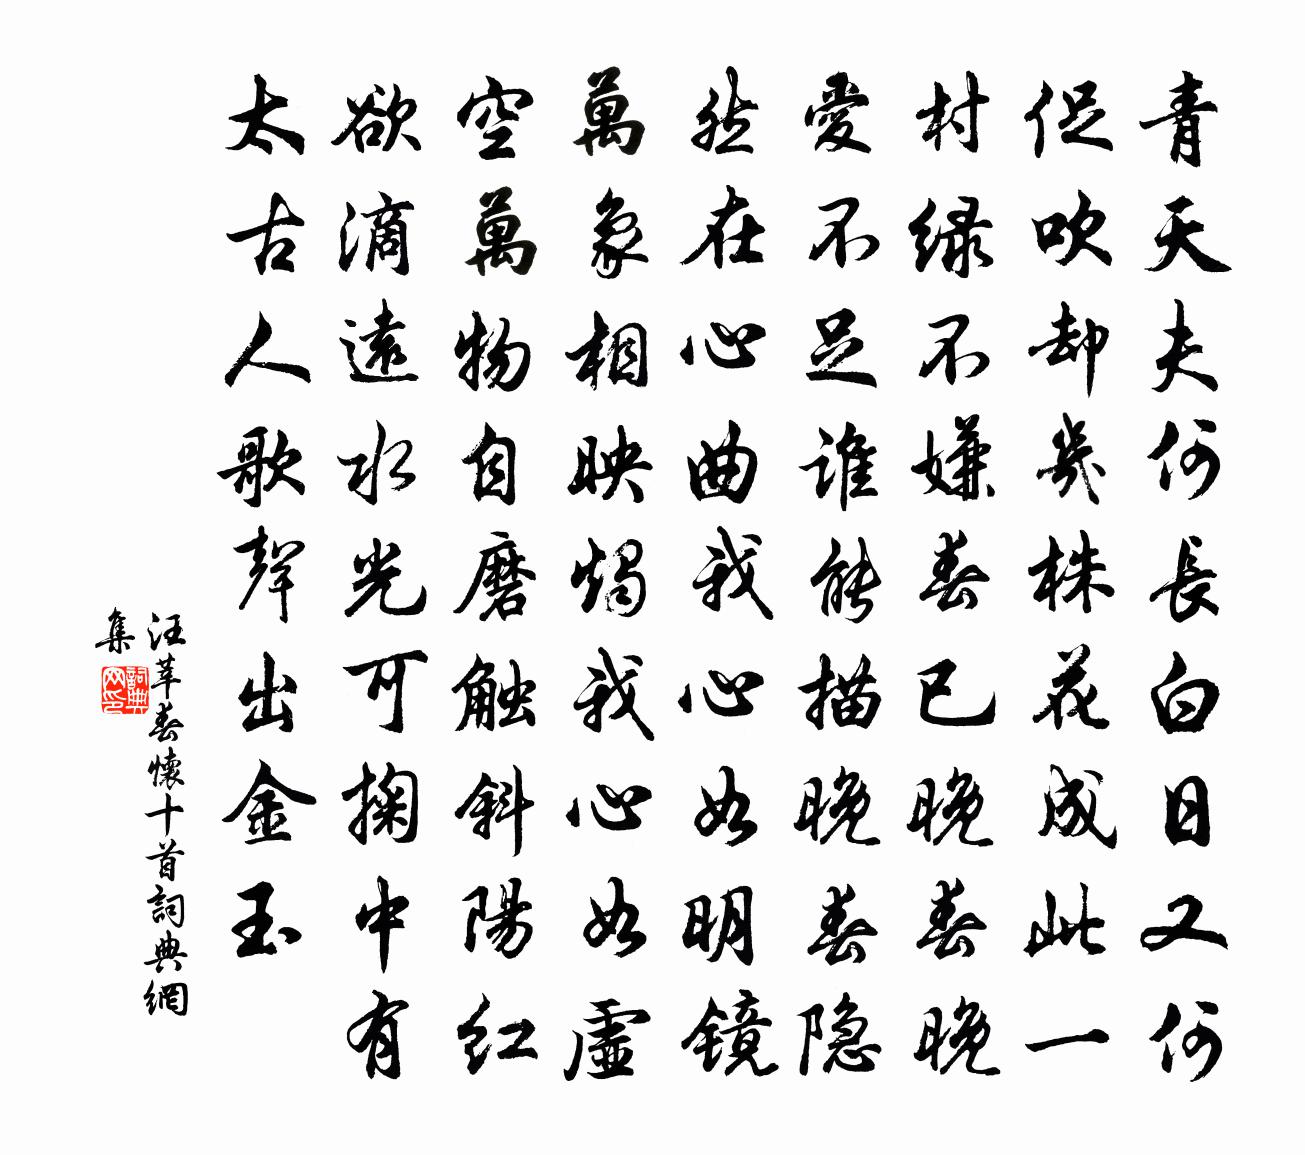 青天夫何長白日又何
促吹却幾株花成此一
村绿不嫌春已晚春晚
愛不足谁能描晚春隐
然在心曲我心如明镜
萬象相映燭我心如虛
空萬物自磨觸斜陽红
欲滴遠水光可掬中有
太古人歌聲出金玉
汪莘春懷十首詞典網
集
詞典网印